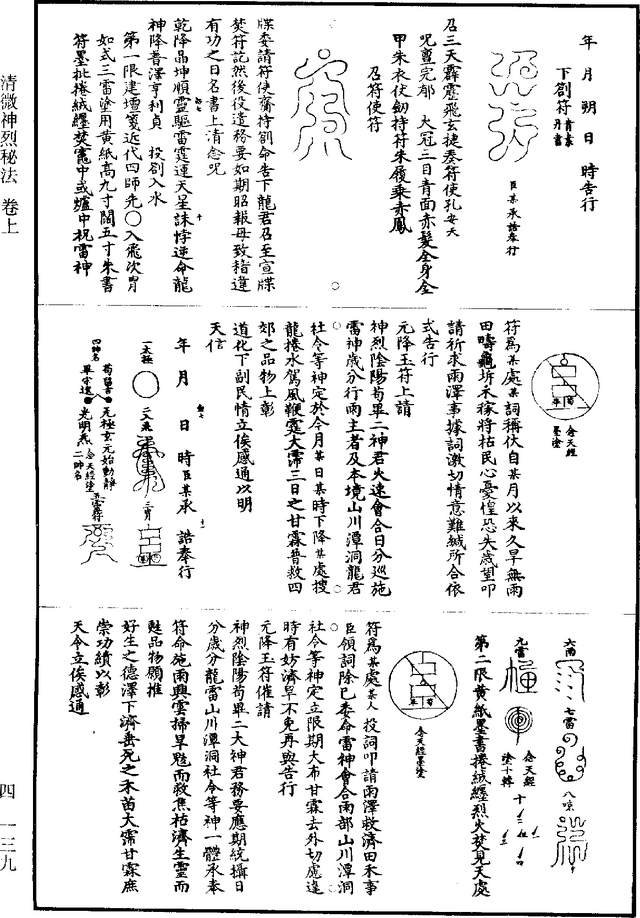 年月朔日時告行
下劄符青素丹書
臣某承誥奉行
召三天霹靂飛玄捷奏符使孔安天
咒亶完郁大冠三日青面赤髮全身金
甲朱衣仗劒持符朱履乘赤鳳
召符使符
牒委請符使齎持劄命告下龍君召至宣牒
焚符訖然後役遣務要如期昭報毋致稽違
有功之日名書上清念咒
乾降晶坤順靈驅雷霆運天星誅悖逆命龍
神降普澤亨利貞投劄入水
第一限建壇篆近代四師先〇入飛次冐
如式三雷塗用黃紙高九寸闊五寸朱書
符墨批捲絨纏焚竈中或爐中祝雷神
清微神烈秘法卷上
念天經墨塗
符為某處某詞稱伏自某月以來久旱無雨
田疇龜坼禾稼將枯民心憂惶恐失歲望叩
請祈求雨澤事據詞激切情意難緘所合依
式告行
元降玉符上請
神烈陰陽荀畢二神君火速會合日分巡施
雷神歲分行雨主者及本境山川潭洞龍君
社令等神定於今月某日某時下降某處搜
龍捲水駕風鞭霆大霈三日之甘霖普救四
郊之品物上彰
道化下副民情立俟感通以明
天信
年月日時臣某承誥奉行
一太極
二人飛
三冐
四帥名
荀留吉
畢宗遠
無極玄元始動靜
光明焏
念天經塗二帥名
五雷符
六雨
七雷
八唵
九當
念天經塗十轉
十
第二限黃紙墨書捲絨纏烈火焚見天處
念天經墨塗
符為某處某人投詞叩請雨澤救濟田禾事
臣領詞除已委命雷神會合雨部山川潭洞
社令等神定立限期大布甘霖去外切處違
時有妨濟旱不免再與告行
元降玉符催請
神烈陰陽荀畢二大神君務要應期統攝日
分歲分龍雷山川潭洞社令等神一體承奉
符命施雨興雲掃旱魃而救焦枯濟生靈而
甦品物願推
好生之德澤下濟垂死之禾苗大霈甘霖庶
崇功績以彰
天令立俟感通
四一三九